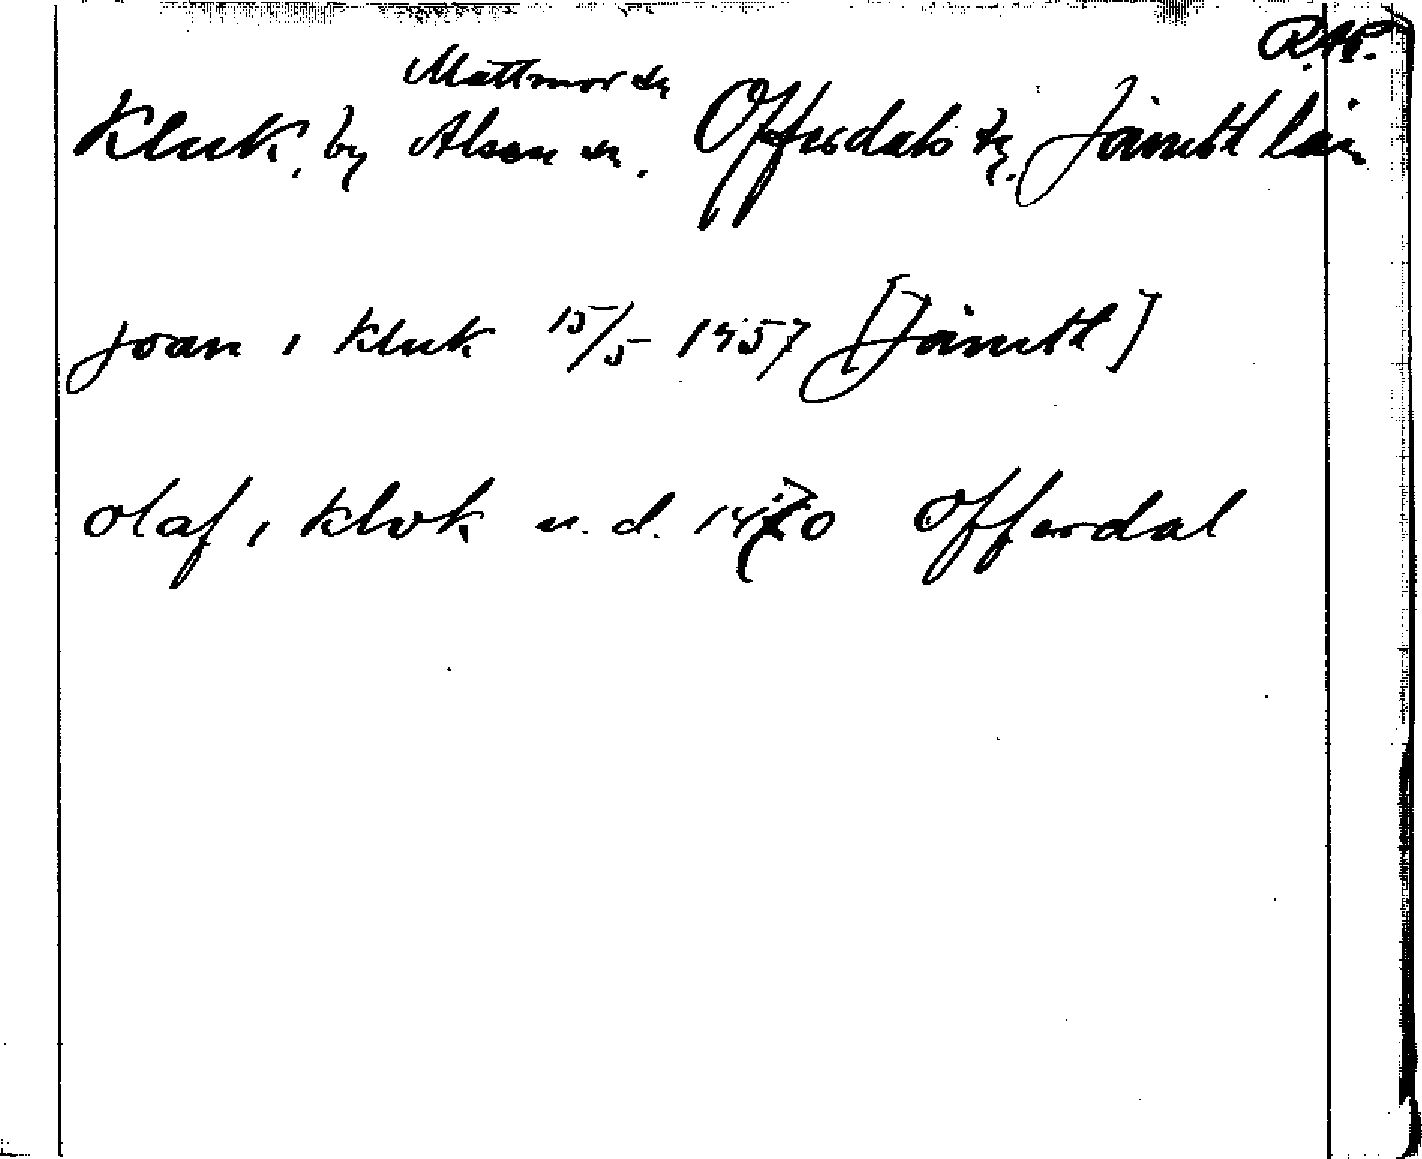 R.A.P.
Mattmor sn
Kluk, by Alsen sn. Offerdals tg. Jämtl län
Joan i Kluk 15/5 1457 [Jämtl]
Olaf i Klok u.d. 1470 Offerdal